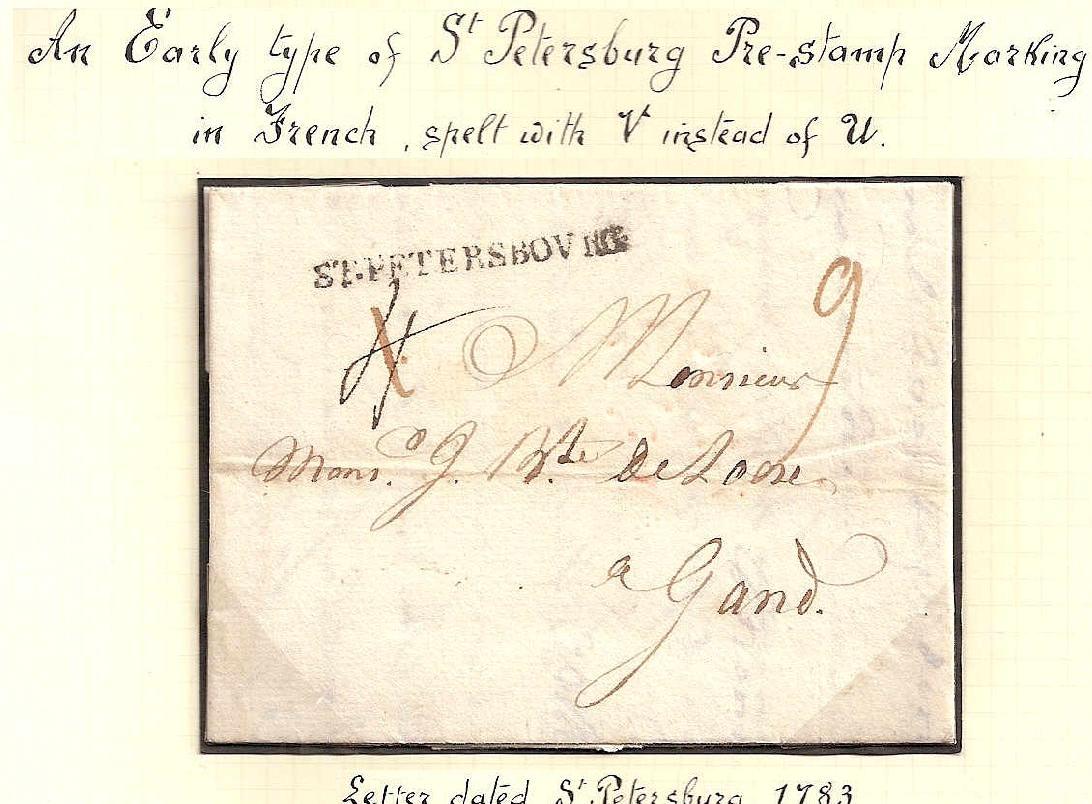 An Early type of St Petersburg Pre-stamp Marking
in French, spelt with V instead of U.
ST.PETERSBOVRG
9
4
A Monsieur
Mons. J. Bte De Loose
a Gand.
Letter dated St Petersburg 1783